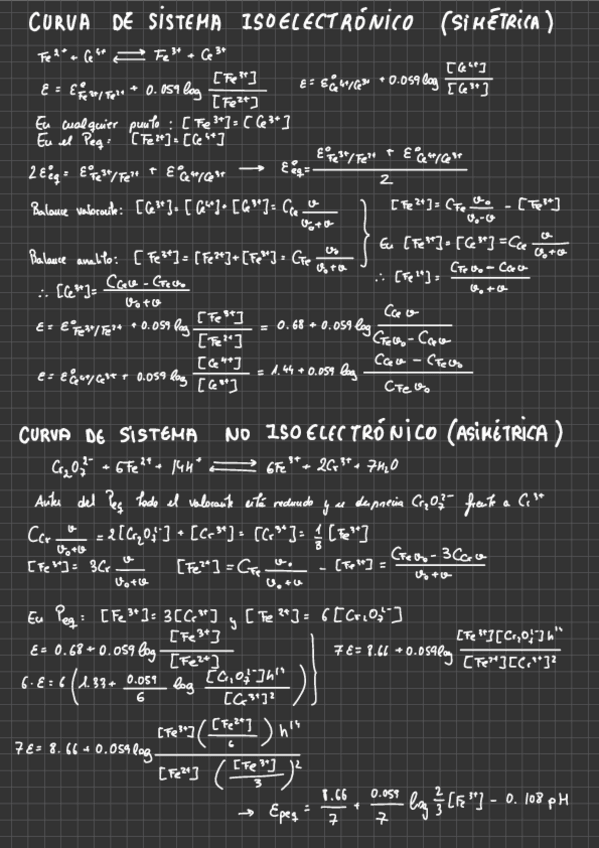 CURVA DE SISTEMA ISOELECTRÓNICO (SIMÉTRICA)
Fe²⁺ + Ce⁴⁺ ⇌ Fe³⁺ + Ce³⁺
ε = ε°Fe³⁺/Fe²⁺ + 0.059 log [Fe³⁺]/[Fe²⁺]    ε = ε°Ce⁴⁺/Ce³⁺ + 0.059 log [Ce⁴⁺]/[Ce³⁺]
En cualquier punto: [Fe³⁺] = [Ce³⁺]
En el Peq: [Fe²⁺] = [Ce⁴⁺]
2ε°eq = ε°Fe³⁺/Fe²⁺ + ε°Ce⁴⁺/Ce³⁺ → ε°eq = (ε°Fe³⁺/Fe²⁺ + ε°Ce⁴⁺/Ce³⁺)/2
Balance valorante: [Ce³⁺] = [Ce⁴⁺] + [Ce³⁺] = C_Ce v/(v₀+v)    [Fe²⁺] = C_Fe v₀/(v₀-v) - [Fe³⁺]
En [Fe³⁺] = [Ce³⁺] = C_Ce v/(v₀+v)
Balance analito: [Fe³⁺] = [Fe²⁺] + [Fe³⁺] = C_Fe v₀/(v₀+v)    ∴ [Fe²⁺] = (C_Fe v₀ - C_Ce v)/(v₀+v)
∴ [Ce⁴⁺] = (C_Ce v - C_Fe v₀)/(v₀+v)
ε = ε°Fe³⁺/Fe²⁺ + 0.059 log [Fe³⁺]/[Fe²⁺] = 0.68 + 0.059 log C_Ce v/(C_Fe v₀ - C_Ce v)
ε = ε°Ce⁴⁺/Ce³⁺ + 0.059 log [Ce⁴⁺]/[Ce³⁺] = 1.44 + 0.059 log (C_Ce v - C_Fe v₀)/(C_Fe v₀)
CURVA DE SISTEMA NO ISOELECTRÓNICO (ASIMÉTRICA)
Cr₂O₇²⁻ + 6Fe²⁺ + 14H⁺ ⇌ 6Fe³⁺ + 2Cr³⁺ + 7H₂O
Antes del Peq todo el valorante está reducido y se desprecia Cr₂O₇²⁻ frente a Cr³⁺
C_Cr v/(v₀+v) = 2[Cr₂O₇²⁻] + [Cr³⁺] = [Cr³⁺] = 1/3 [Fe³⁺]
[Fe³⁺] = 3Cr v/(v₀+v)    [Fe²⁺] = C_Fe v₀/(v₀+v) - [Fe³⁺] = (C_Fe v₀ - 3C_Cr v)/(v₀+v)
En Peq: [Fe³⁺] = 3[Cr³⁺] y [Fe²⁺] = 6[Cr₂O₇²⁻]
ε = 0.68 + 0.059 log [Fe³⁺]/[Fe²⁺]    7ε = 8.66 + 0.059 log [Fe³⁺][Cr₂O₇²⁻]h¹⁴/([Fe²⁺][Cr³⁺]²)
6·ε = 6(1.33 + 0.059/6 log [Cr₂O₇²⁻]h¹⁴/[Cr³⁺]²)
7ε = 8.66 + 0.059 log [Fe³⁺]([Fe²⁺]/6)h¹⁴/([Fe²⁺]([Fe³⁺]/3)²)
→ εpeq = 8.66/7 + 0.059/7 log 2/3 [Fe³⁺] - 0.108 pH